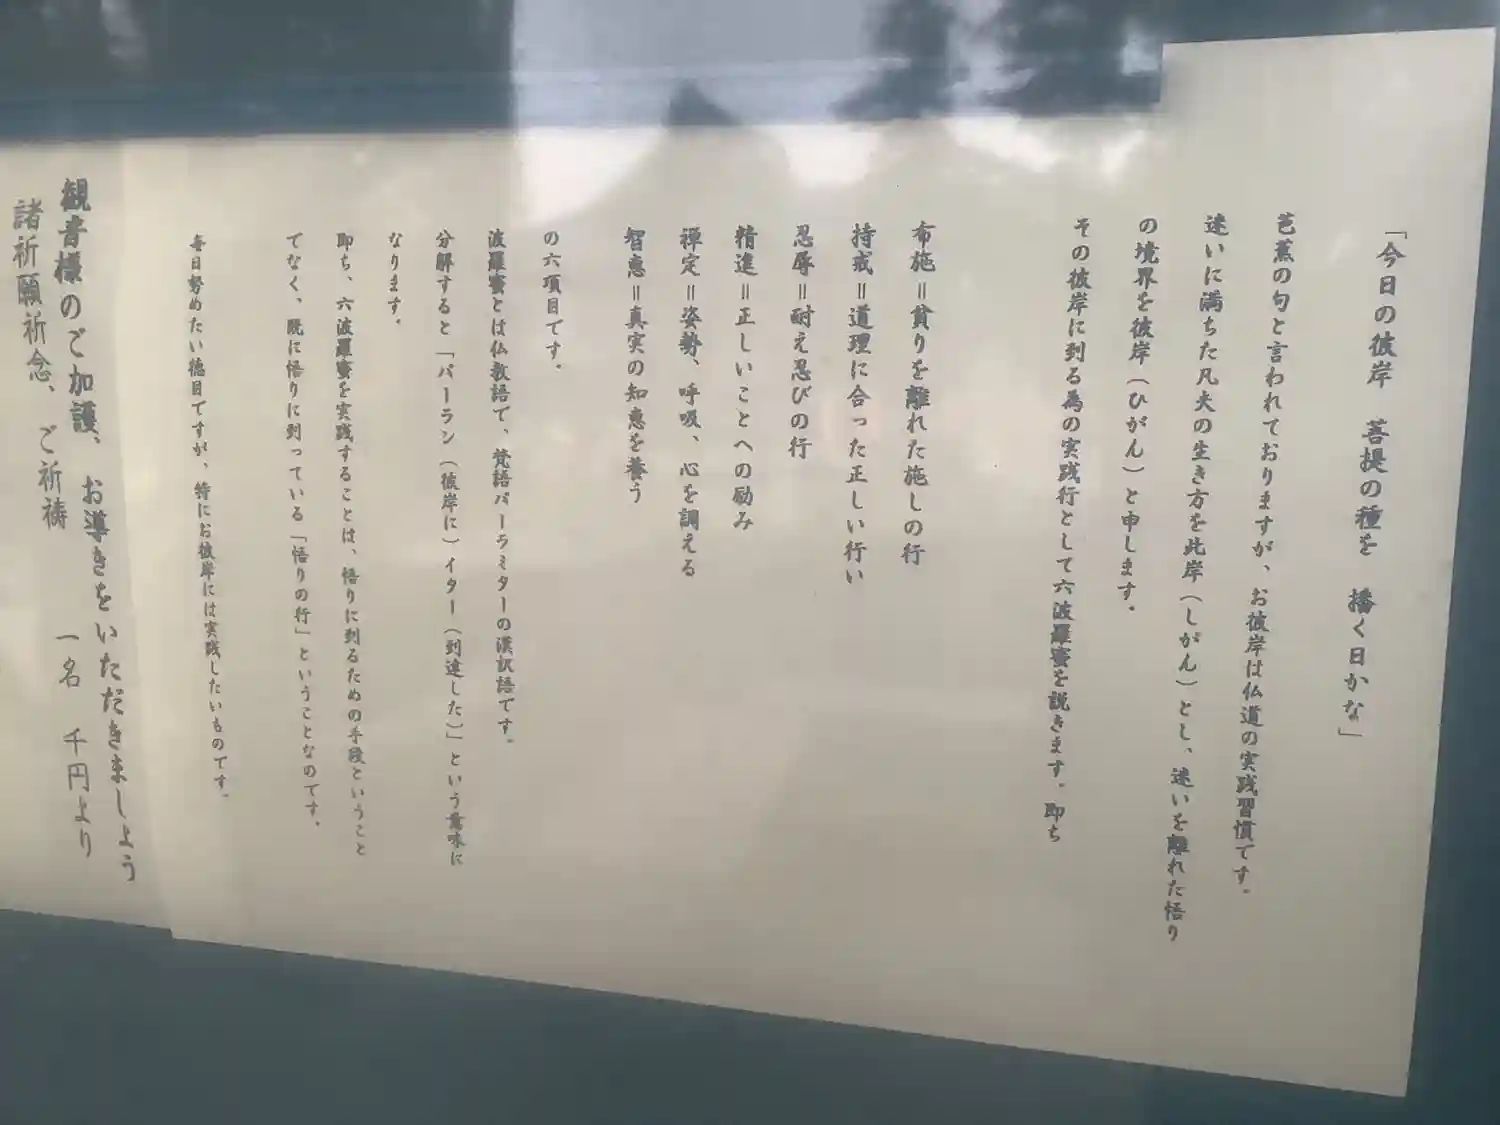 「今日の彼岸　菩提の種を　播く日かな」
芭蕉の句と言われておりますが、お彼岸は仏道の実践習慣です。
迷いに満ちた凡夫の生き方を此岸（しがん）とし、迷いを離れた悟り
の境界を彼岸（ひがん）と申します。
その彼岸に到る為の実践行として六波羅蜜を説きます。即ち
布施＝貧りを離れた施しの行
持戒＝道理に合った正しい行い
忍辱＝耐え忍びの行
精進＝正しいことへの励み
禅定＝姿勢、呼吸、心を調える
智恵＝真実の知恵を養う
の六項目です。
波羅蜜とは仏教語で、梵語パーラミターの漢訳語です。
分解すると「パーラン（彼岸に）イター（到達した）」という意味に
なります。
即ち、六波羅蜜を実践することは、悟りに到るための手段ということ
でなく、既に悟りに到っている「悟りの行」ということなのです。
毎日努めたい徳目ですが、特にお彼岸には実践したいものです。
観音様のご加護、お導きをいただきましょう
諸祈願祈念、ご祈祷　一名　千円より